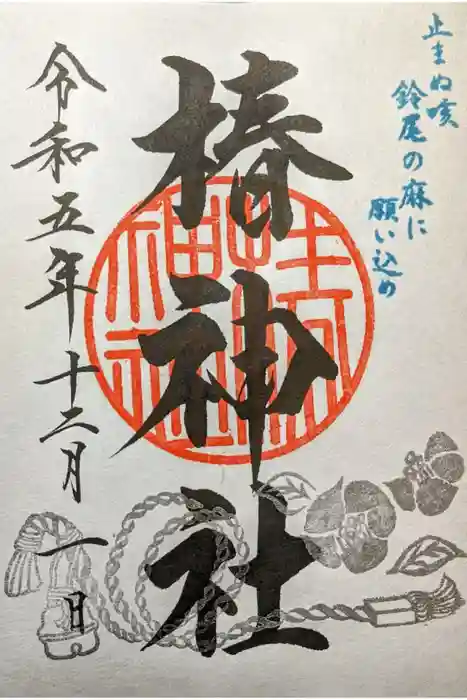 止まぬ咳
鈴尾の麻に
願い込め
椿神社
令和五年十二月一日